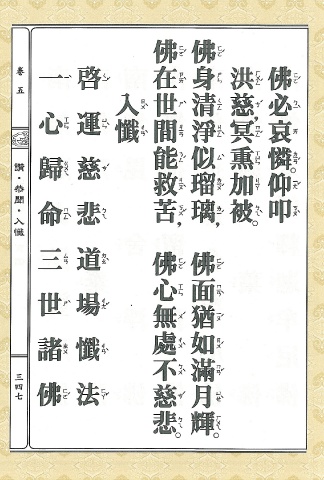 佛必哀憐。仰叩
洪慈，冥熏加被。
佛身清淨似瑠璃，佛面猶如滿月輝。
佛在世間能救苦，佛心無處不慈悲。
入懺
啓運慈悲道場懺法
一心歸命三世諸佛
卷五
讚．恭聞．入懺
三四七